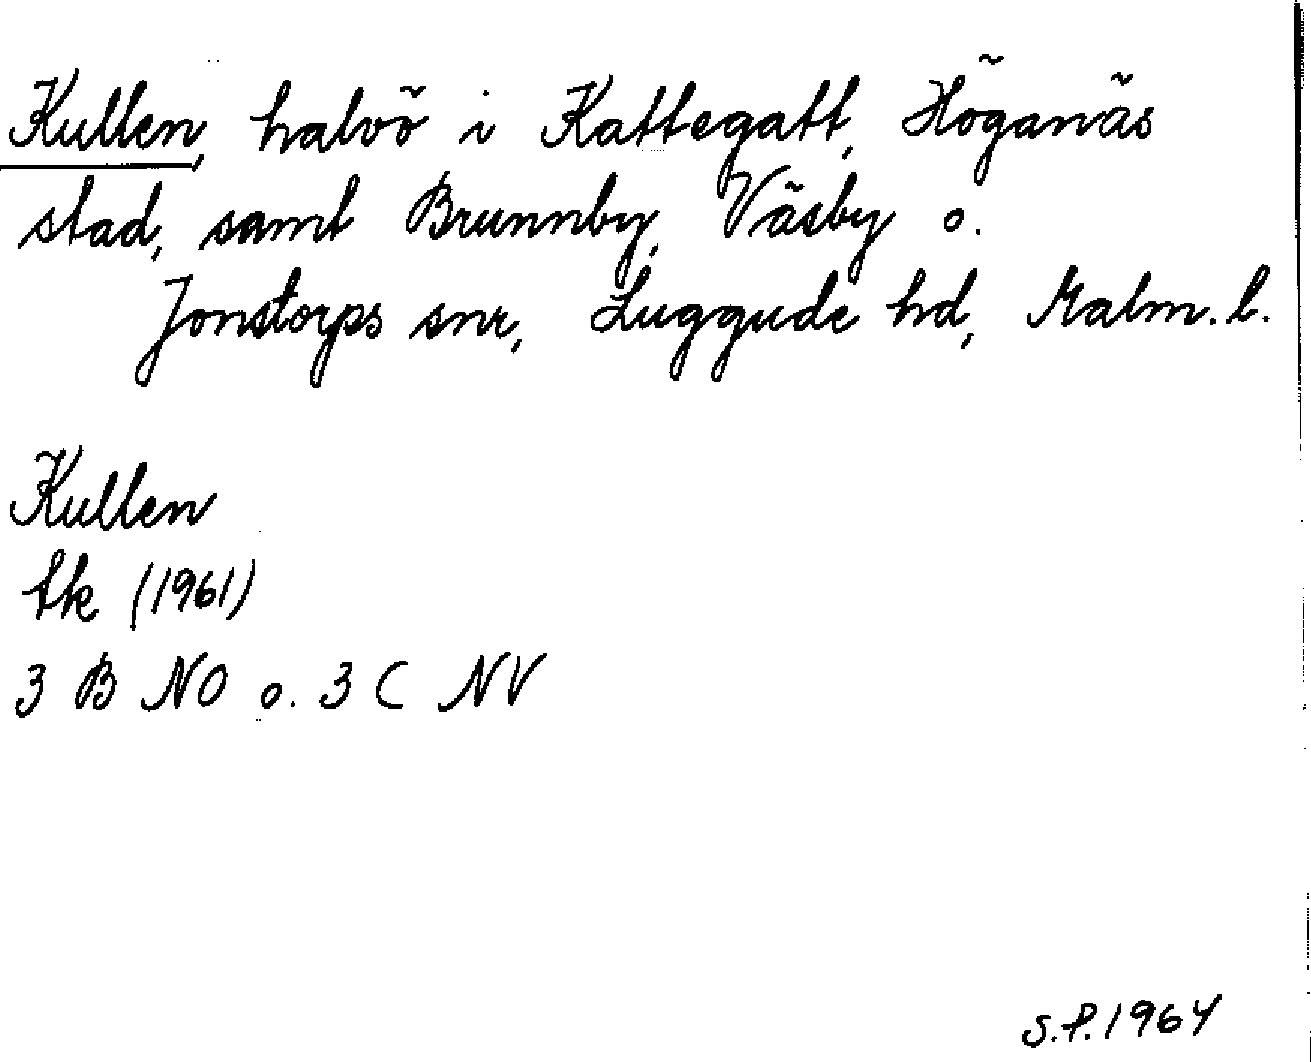 Kullen, halvö i Kattegatt, Höganäs
stad, samt Brunnby, Väsby o.
Jonstorps snr, Luggude hd, Malm. l.
Kullen
tk (1961)
3 B NO o. 3 C NV
S.P. 1964